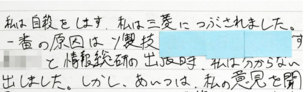 私は自殺をします、私は三菱につぶされました。
一番の原因は、ソ製技 す
と情報総研の出版時、私は分からない
出しました。しかし、あいつは、私の意見を聞